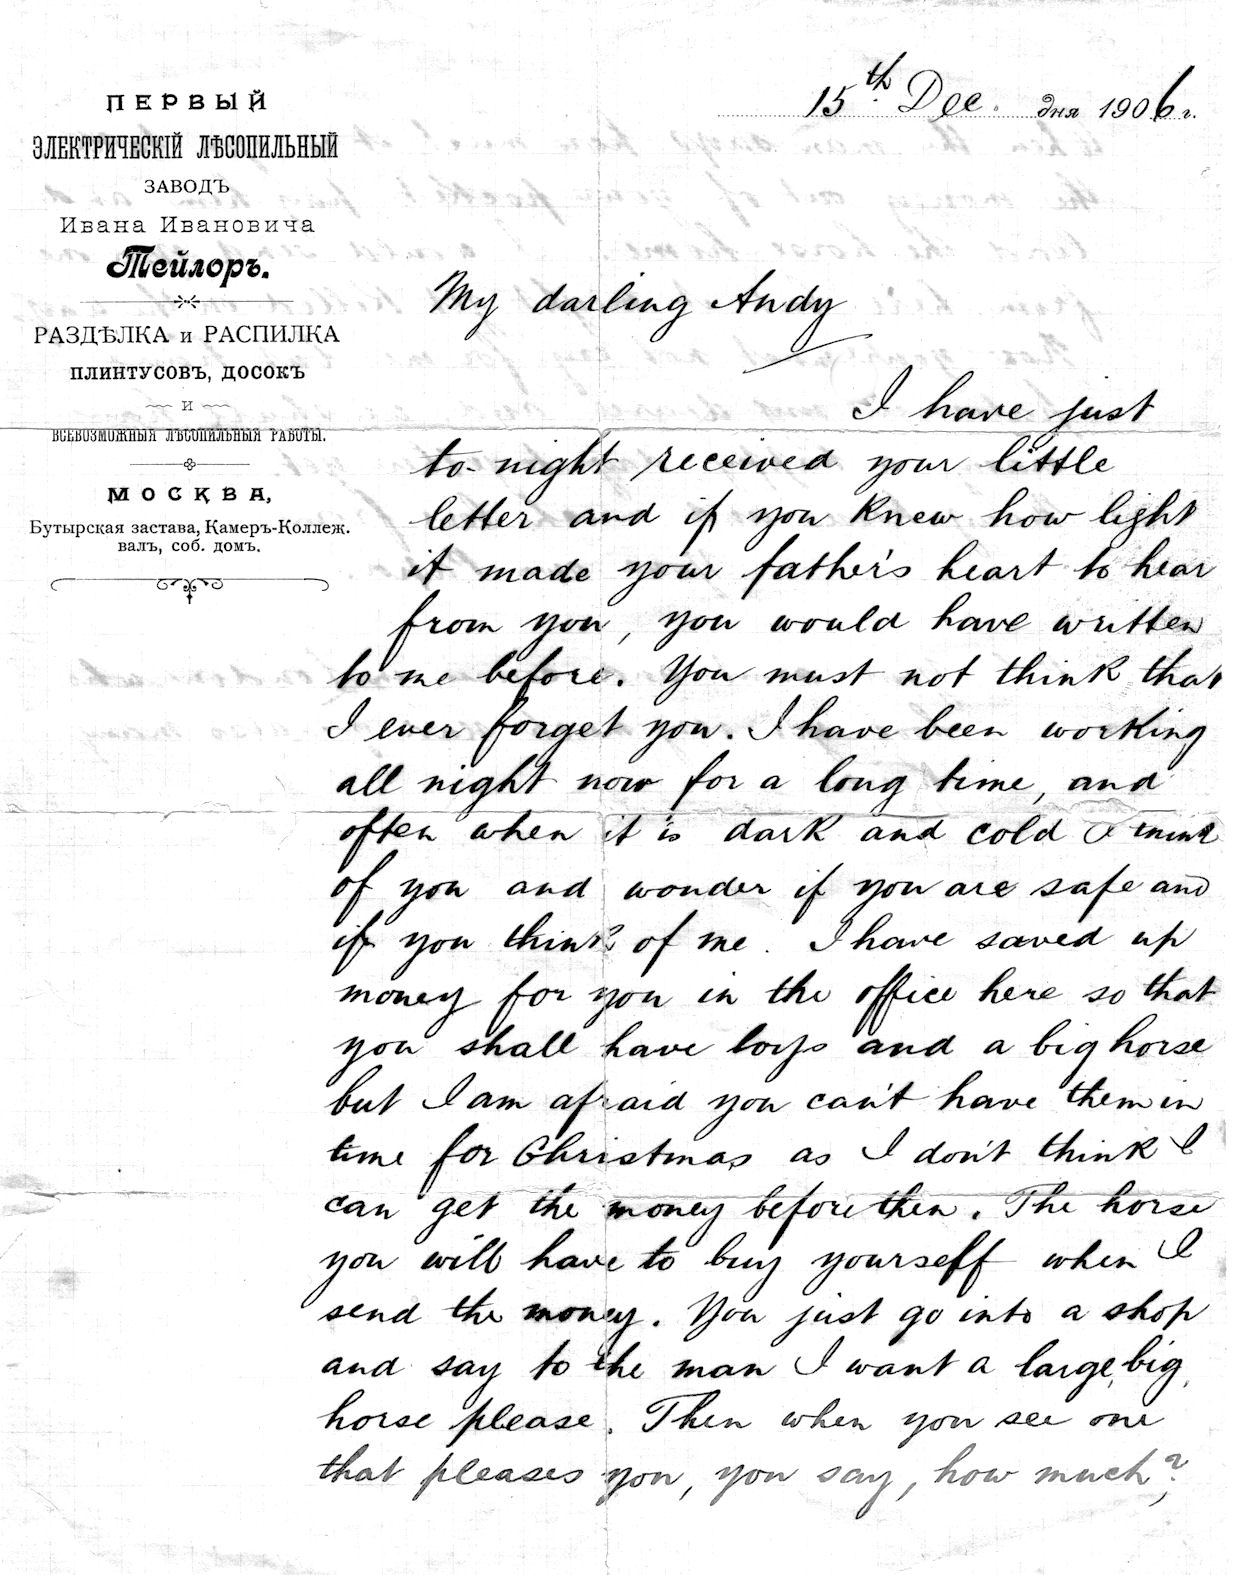 ПЕРВЫЙ
ЭЛЕКТРИЧЕСКІЙ ЛѢСОПИЛЬНЫЙ
ЗАВОДЪ
Ивана Ивановича
Тейлоръ.
РАЗДѢЛКА и РАСПИЛКА
ПЛИНТУСОВЪ, ДОСОКЪ
И
ВСЕВОЗМОЖНЫЯ ЛѢСОПИЛЬНЫЯ РАБОТЫ.
МОСКВА,
Бутырская застава, Камеръ-Коллеж.
валъ, соб. домъ.
15th Dec. дня 1906 г.
My darling Andy
I have just
to-night received your little
letter and if you knew how light
it made your father's heart to hear
from you, you would have written
to me before. You must not think that
I ever forget you. I have been working
all night now for a long time, and
often when it is dark and cold I think
of you and wonder if you are safe and
if you think of me. I have saved up
money for you in the office here so that
you shall have toys and a big horse
but I am afraid you can't have them in
time for Christmas as I don't think I
can get the money before then. The horse
you will have to buy yourself when I
send the money. You just go into a shop
and say to the man I want a large, big,
horse please. Then when you see one
that pleases you, you say, how much?